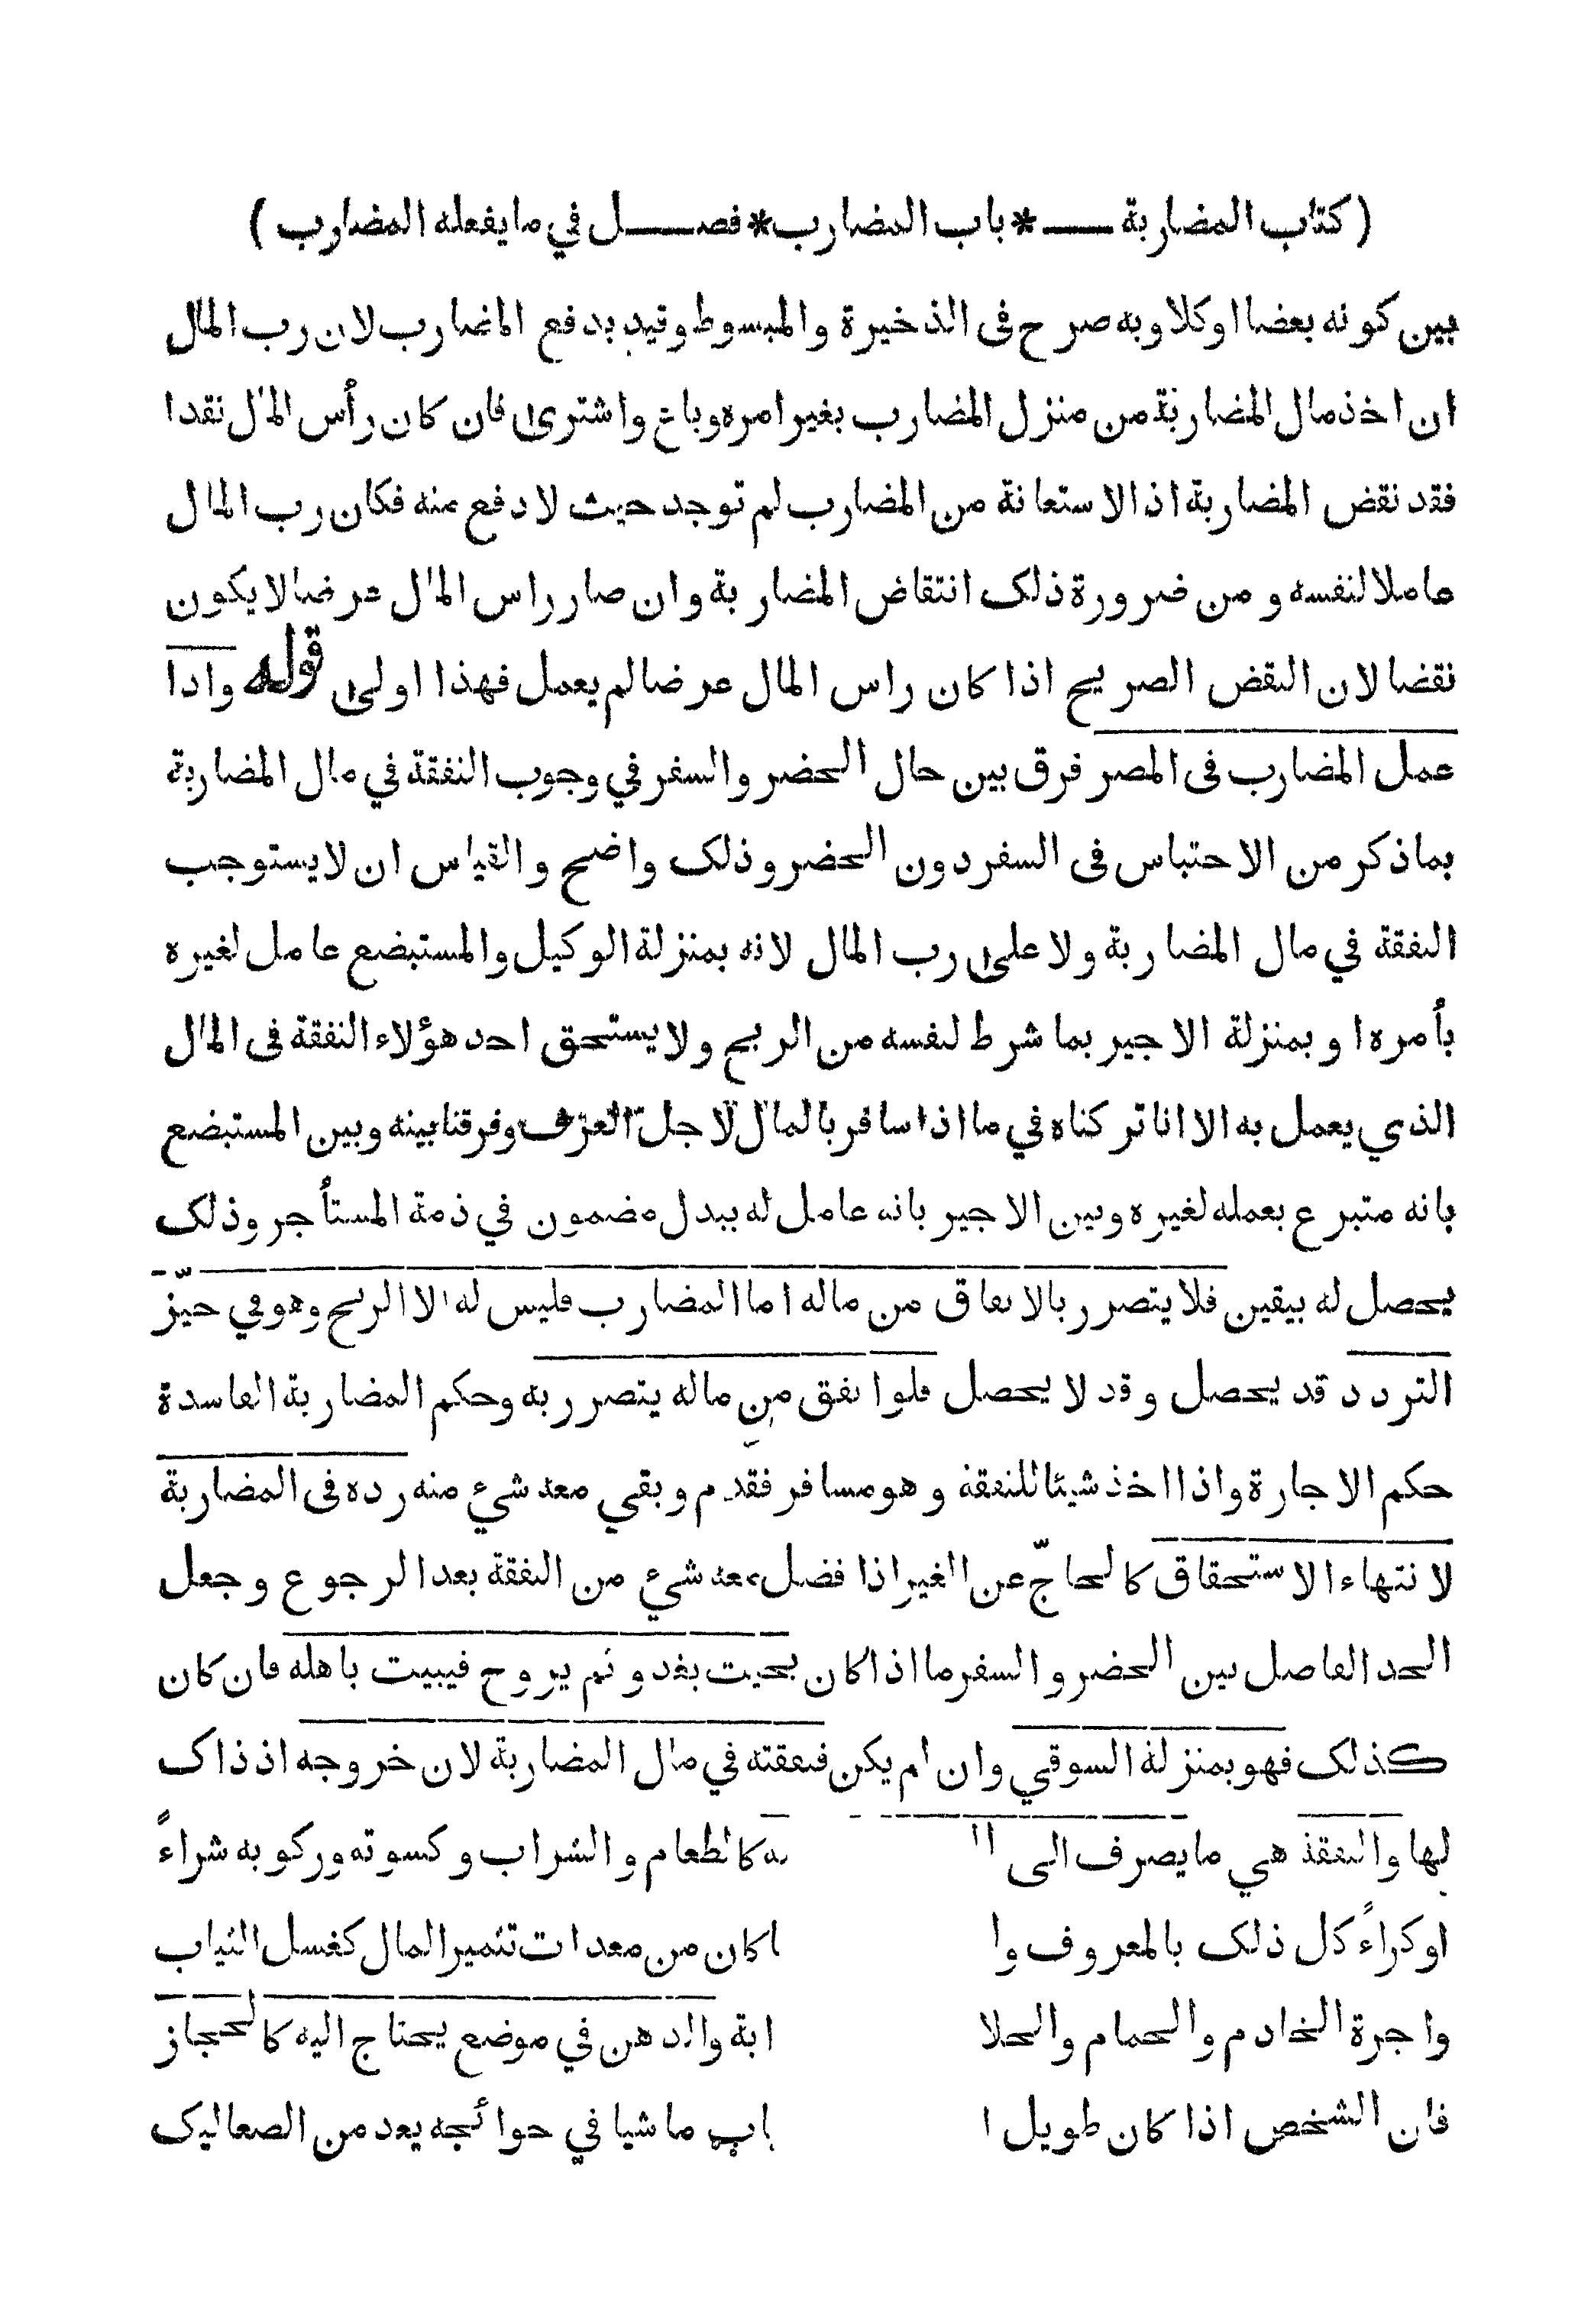 ( كتاب المضاربة — * باب المضارب * فصل في ما يفعله المضارب )
بين كونه بعضا او كلا وبه صرح فى الذخيرة والمبسوط وقيد بدفع المضارب لان رب المال
ان اخذ مال المضاربة من منزل المضارب بغير امره وباع واشترى فان كان رأس المال نقدا
فقد نقض المضاربة اذ الاستعانة من المضارب لم توجد حيث لا دفع منه فكان رب المال
عاملا لنفسه و من ضرورة ذلک انتقاض المضاربة وان صار راس المال عرضا لا يكون
نقضا لان النقض الصريح اذا كان راس المال عرضا لم يعمل فهذا اولى قوله واذا
عمل المضارب فى المصر فرق بين حال الحضر والسفر في وجوب النفقة في مال المضاربة
بماذكر من الاحتباس فى السفر دون الحضر وذلک واضح والقياس ان لا يستوجب
النفقة في مال المضاربة ولا على رب المال لانه بمنزلة الوكيل والمستبضع عامل لغيره
بأمره او بمنزلة الاجير بما شرط لنفسه من الربح ولا يستحق احد هؤلاء النفقة فى المال
الذي يعمل به الا انا تركناه في ما اذا سافر بالمال لاجل العرف وفرقنا بينه وبين المستبضع
بانه متبرع بعمله لغيره وبين الاجير بانه عامل له ببدل مضمون في ذمة المستأجر وذلک
يحصل له بيقين فلا يتضرر بالانفاق من ماله اما المضارب فليس له الا الربح وهو في حيّز
التردد قد يحصل وقد لا يحصل فلو انفق من ماله يتضرر به وحكم المضاربة الفاسدة
حكم الاجارة واذا اخذ شيئا للنفقة وهو مسافر فقدم وبقي معه شيء منه رده فى المضاربة
لانتهاء الاستحقاق كالحاجّ عن الغير اذا فضل معه شيء من النفقة بعد الرجوع وجعل
الحد الفاصل بين الحضر والسفر ما اذا كان بحيث يغدو ثم يروح فيبيت باهله فان كان
كذلک فهو بمنزلة السوقي وان لم يكن فنفقته في مال المضاربة لان خروجه اذ ذاک
لها والنفقة هي ما يصرف الى كالطعام والشراب وكسوته وركوبه شراءً
او كراءً كل ذلک بالمعروف كان من معدات تثمير المال كغسل الثياب
واجرة الخادم والحمام والدهن في موضع يحتاج اليه كالحجاز
فان الشخص اذا كان طويل ماشيا في حوائجه يعد من الصعاليک